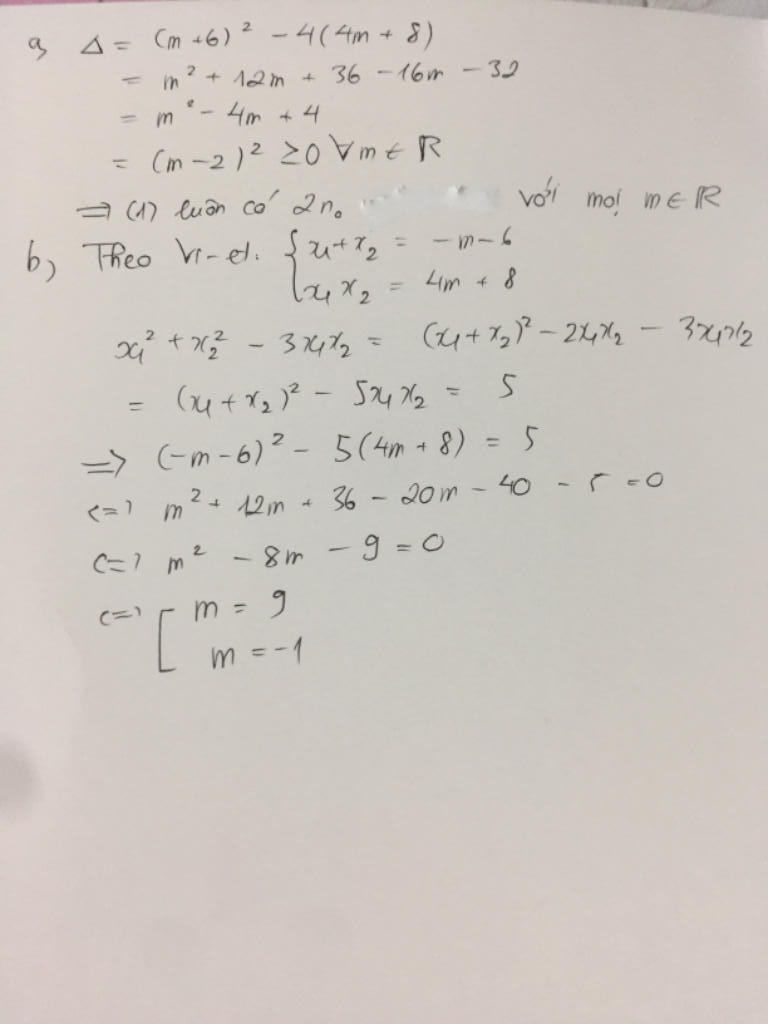 a, Δ = (m+6)² - 4(4m + 8)
= m² + 12m + 36 - 16m - 32
= m² - 4m + 4
= (m-2)² ≥0 ∀m ∈ ℝ
⇒ (1) luôn có 2n₀ với mọi m∈ℝ
b, Theo Vi-et. { x₁+x₂ = -m-6
x₁x₂ = 4m + 8
x₁² + x₂² - 3x₁x₂ = (x₁+x₂)² - 2x₁x₂ - 3x₁x₂
= (x₁+x₂)² - 5x₁x₂ = 5
⇒ (-m-6)² - 5(4m+8) = 5
<=> m² + 12m + 36 - 20m - 40 - 5 =0
<=> m² - 8m - 9 = 0
<=> [ m = 9
m = -1